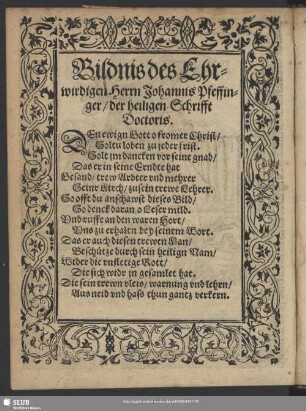 Bildnis des Ehr-
wirdigen Herrn Johannis Pfeffin-
ger/ der heiligen Schrifft
Doctoris.
DEn ewign Gott o fromer Christ/
Soltu loben zu jeder frist.
Solt im dancken vor seine gnad/
Das er in seine Erndte hat
Gesand/ trew Arbter vnd mehrer
Seinr Kirch/ zu sein trewe Lehrer.
So offt du anschawst dieses Bild/
So denck daran o Leser mild.
Vnd ruffe an den waren Hort/
Vns zu erhalten bey seinem Wort.
Das er auch diesen trewen Man/
Beschütze durch sein heilign Nam/
Wider die vnfletige Rott/
Die sich widr in gesamlet hat.
Die sein trewn vleis/ warnung vnd lehrn/
Aus neid vnd hass thun gantz verkern.
SLUB
Wir führen Wissen.